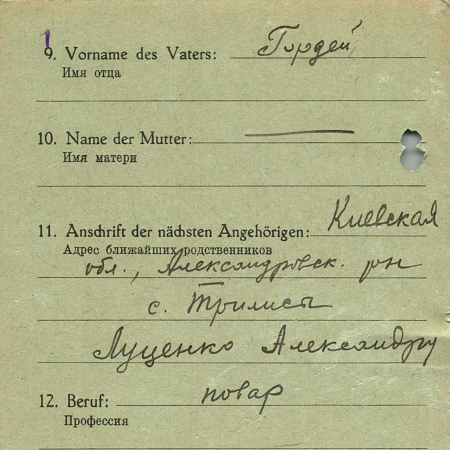 9. Vorname des Vaters: Гордей
Имя отца
10. Name der Mutter: —
Имя матери
11. Anschrift der nächsten Angehörigen: Киевская
Адрес ближайших родственников
обл., Александровск. рн
с. Трилисы
Луценко Александру
12. Beruf: повар
Профессия